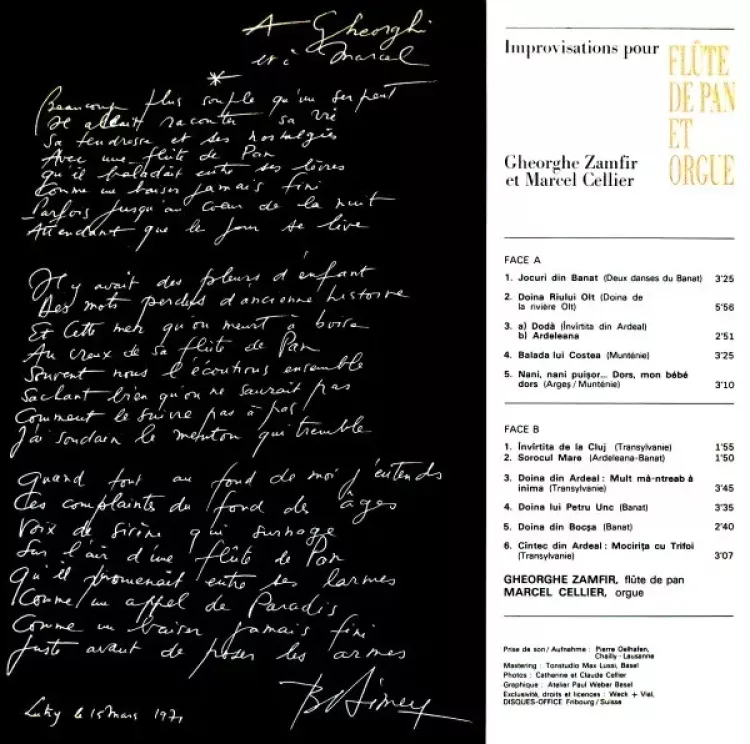 A Gheorghi
et à Marcel
*
Beaucoup plus souple qu'un serpent
Il allait raconter sa vie
Sa tendresse et ses nostalgies
Avec une flûte de Pan
Qu'il baladait entre ses lèvres
Comme un baiser jamais fini
Parfois jusqu'au coeur de la nuit
Attendant que le jour se lève
Il y avait des pleurs d'enfant
Des mots perdus d'ancienne histoire
Et cette mer qu'on meurt à boire
Au creux de sa flûte de Pan
Souvent nous l'écoutions ensemble
Sachant bien qu'on ne saurait pas
Comment le suivre pas à pas
J'ai soudain le menton qui tremble
Quand tout au fond de moi j'entends
Ces complaintes du fond des âges
Voix de sirène qui surnage
Sur l'air d'une flûte de Pan
Qu'il promenait entre ses larmes
Comme un appel de Paradis
Comme un baiser jamais fini
Juste avant de poser les armes
Lutry le 15 mars 1971
Improvisations pour
FLÛTE
DE PAN
ET
ORGUE
Gheorghe Zamfir
et Marcel Cellier
FACE A
1. Jocuri din Banat (Deux danses du Banat) 3'25
2. Doina Riului Olt (Doina de
la rivière Olt) 5'56
3. a) Dodă (Învîrtita din Ardeal)
b) Ardeleana 2'51
4. Balada lui Costea (Munténie) 3'25
5. Nani, nani puişor... Dors, mon bébé
dors (Argeş / Munténie) 3'10
FACE B
1. Învîrtita de la Cluj (Transylvanie) 1'55
2. Sorocul Mare (Ardeleana-Banat) 1'50
3. Doina din Ardeal : Mult mă-ntreab ă
inima (Transylvanie) 3'45
4. Doina lui Petru Unc (Banat) 3'35
5. Doina din Bocşa (Banat) 2'40
6. Cîntec din Ardeal : Mociriţa cu Trifoi
(Transylvanie) 3'07
GHEORGHE ZAMFIR, flûte de pan
MARCEL CELLIER, orgue
Prise de son / Aufnahme : Pierre Oelhafen,
Chailly - Lausanne
Mastering : Tonstudio Max Lussi, Basel
Photos : Catherine et Claude Cellier
Graphique : Atelier Paul Weber Basel
Exclusivité, droits et licences : Weck + Viel,
DISQUES-OFFICE Fribourg / Suisse